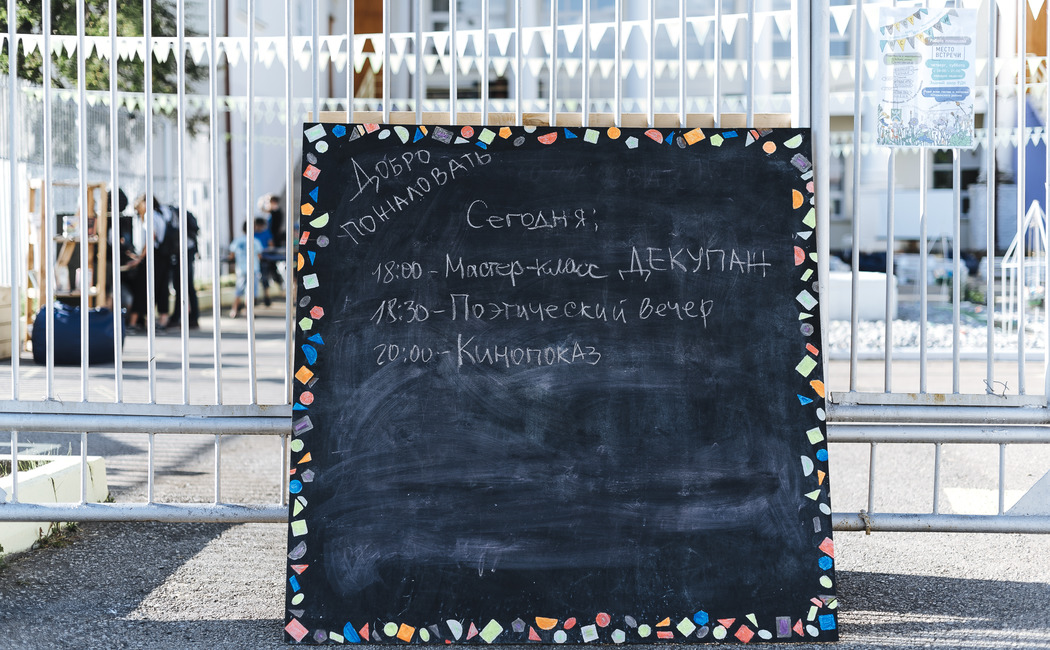 ДОБРО
ПОЖАЛОВАТЬ
Сегодня;
18:00 - Мастер-класс ДЕКУПАЖ
18:30 - Поэтический вечер
20:00 - Кинопоказ
МЕСТО
ВСТРЕЧИ